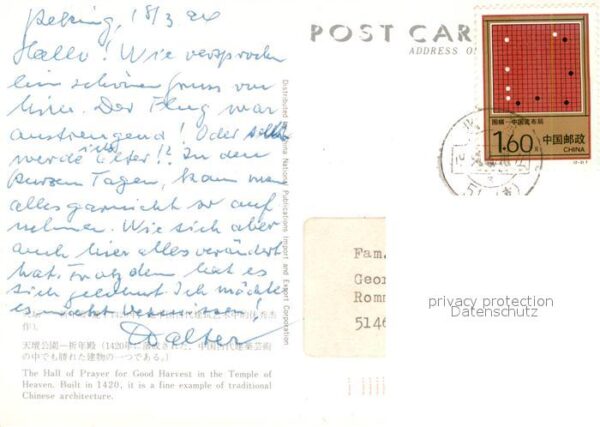 Peking, 18/3 94
Hallo! Wie versprochen
ein schöner Gruss von
hier. Der Flug war
anstrengend! Oder
werde ich älter!? In den
kurzen Tagen, kann man
alles garnicht so auf
nehmen. Wie sich aber
auch hier alles verändert
hat. Trotzdem hat es
sich gelohnt. Ich möchte
es nicht vermissen!
Walter
天壇公園—祈年殿(1420年に落成された、中国古代建築芸術
の中でも勝れた建物の一つである。)
The Hall of Prayer for Good Harvest in the Temple of
Heaven. Built in 1420, it is a fine example of traditional
Chinese architecture.
Distributed by China National Publications Import and Export Corporation
POST CAR
ADDRESS O
围棋—中国流布局
1.60元
中国邮政
CHINA
Fam.
Geor
Romm
5146
privacy protection
Datenschutz